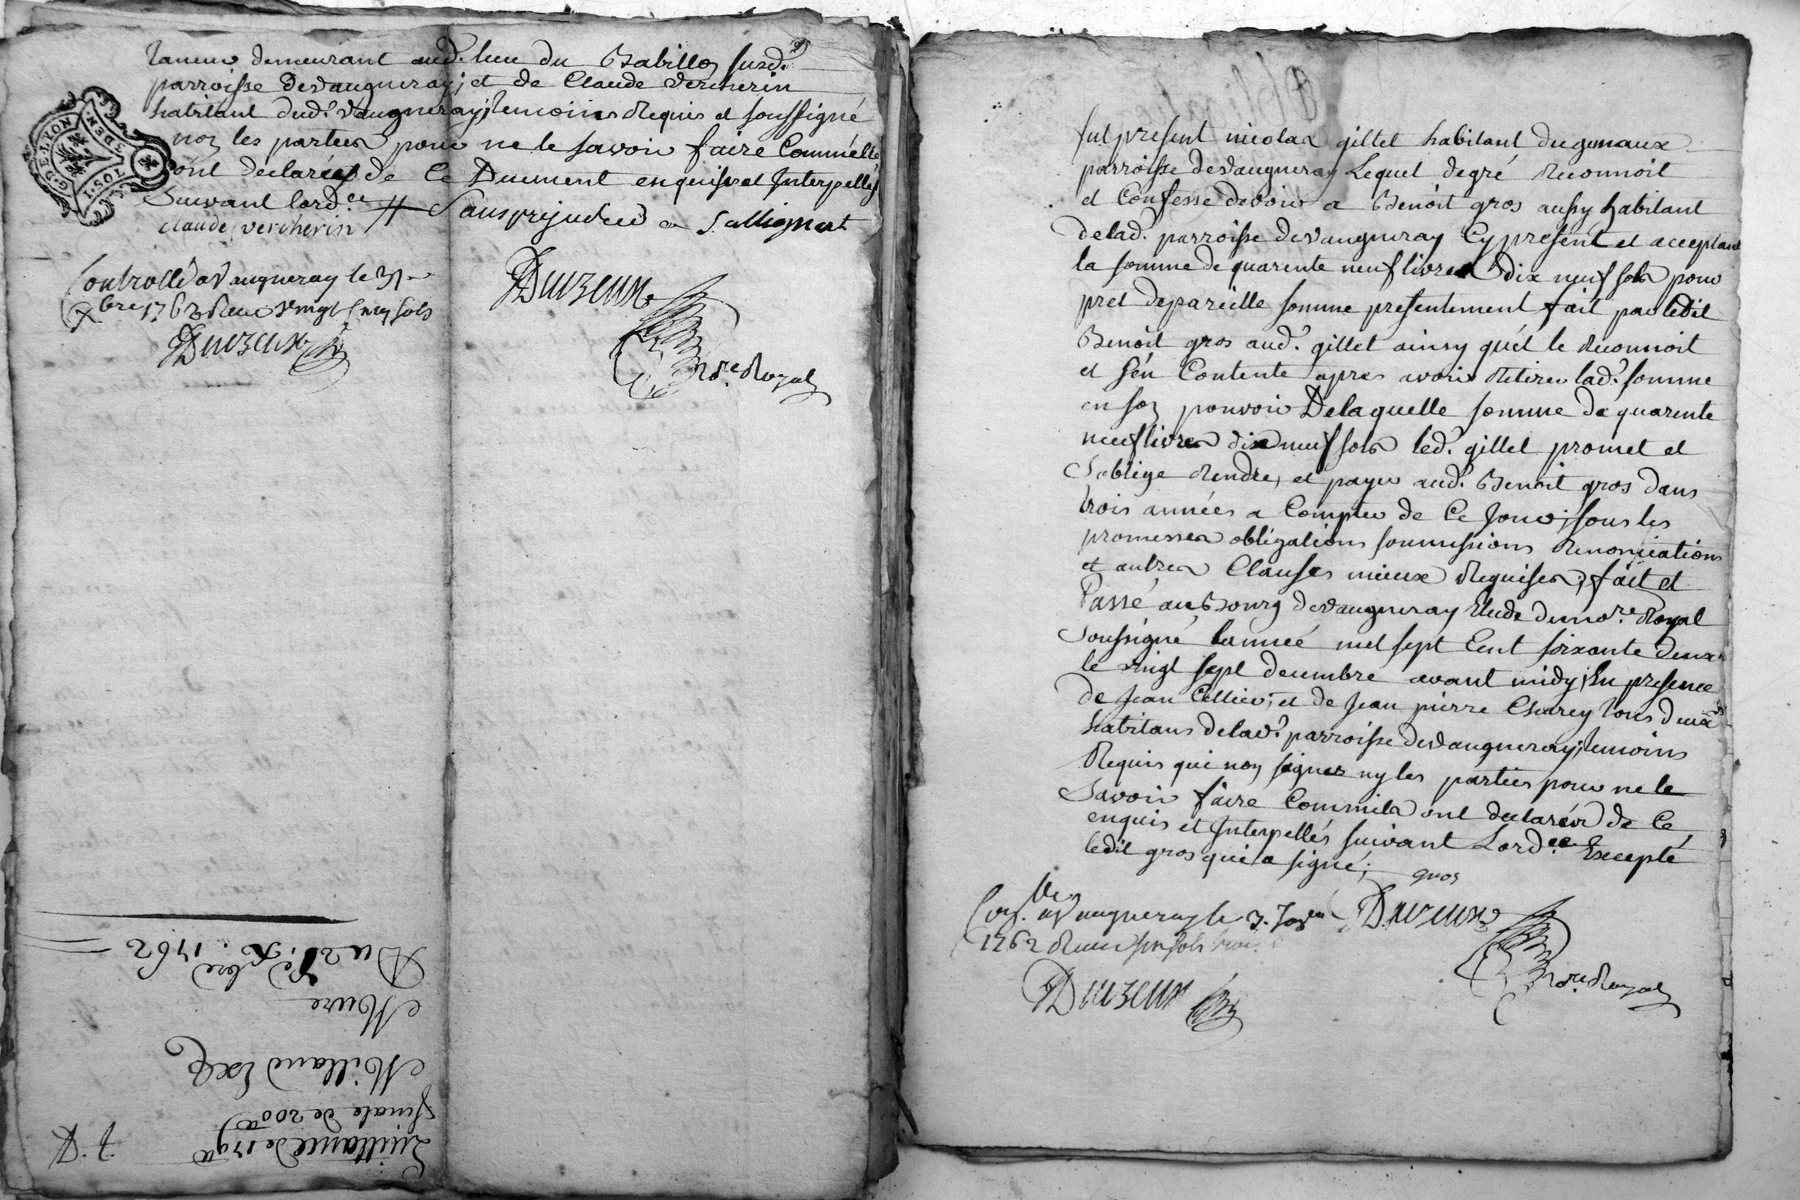 demeurant aud. lieu du Babillo susd.
parroisse devaugneray; et de Claude vercherin
habitant dud. vaugneray; temoins Requis et soussigné
noz les parties pour ne le savoir faire Comme elles
ont declarées de Ce Duement enquises et Interpellés
Suivant lord.ce // Sans prejudice
claude vercherin
Controllé a vaugneray le 31
Xbre 1762 Receu vingt Cinq sols
Duvzeux
Duvzeux
No.re Royal
G. DE LYON
1. SOL
DEN.
Du 21e. Xbre 1762
Mure
Millaud
finale de 200
Quittance de 179
fut present nicolas gillet habitant dugenaux
parroisse devaugneray Lequel degré reconnoit
et Confesse devoir a Benoit gros aussy habitant
delad. parroisse devaugneray Cy present et acceptant
la somme de quarente neuf livres dix neuf sols pour
pret depareille somme presentement fait par ledit
Benoit gros aud. gillet ainsy qu'el le reconnoit
et s'en Contente apres avoir Retirer lad. somme
en soz pouvoir Delaquelle somme de quarente
neuf livres dix neuf sols led. gillet promet et
s'oblige Rendre, et payer aud. Benoit gros dans
trois années a Compter de Ce Jour; sous les
promesses obligations soumissions Renonciations
et autres Clauses mieux Requises; fait et
Passé au Bourg devaugneray Etude dunore Royal
Soussigné lanneé mil sept Cent soixante deux
le vingt sept decembre avant midy; En presence
de Jean Cellier; et de Jean pierre Charey tous deux
habitans delad. parroisse devaugneray; temoins
Requis qui noy signer ny les parties pour ne le
Savoir faire Comm'ils ont declarés de Ce
enquis et Interpellés suivant Lord.ce Excepté
ledit gros qui a signé;
gros
vaugneray le 3. Jan
1762 Receu
Duvzeux
No.re Royal
Duvzeux